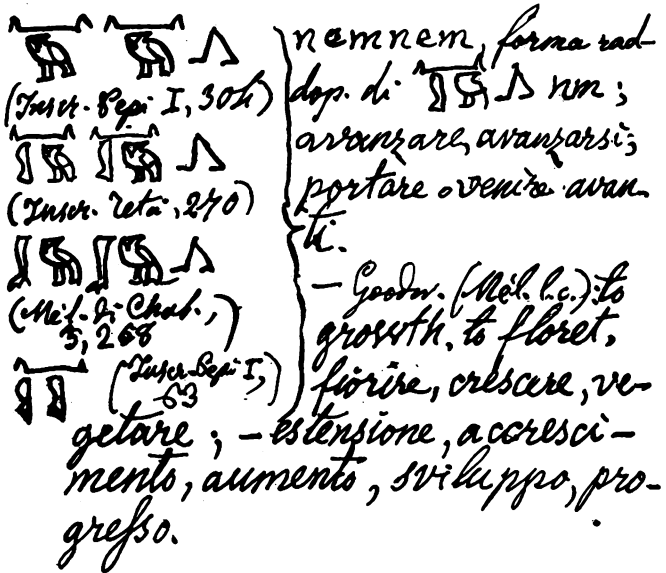 (Inscr. Pepi I, 304)
(Inscr. Teta, 270)
(Mél. di Chab.,
3, 268)
(Inscr. Pepi I,
63)
nemnem, forma rad-
dop. di nm;
avanzare, avanzarsi;
portare o venire avan-
ti.
— Goodw. (Mél. l.c.): to
growth, to floret,
fiorire, crescere, ve-
getare; — estensione, accresci-
mento, aumento, sviluppo, pro-
gresso.